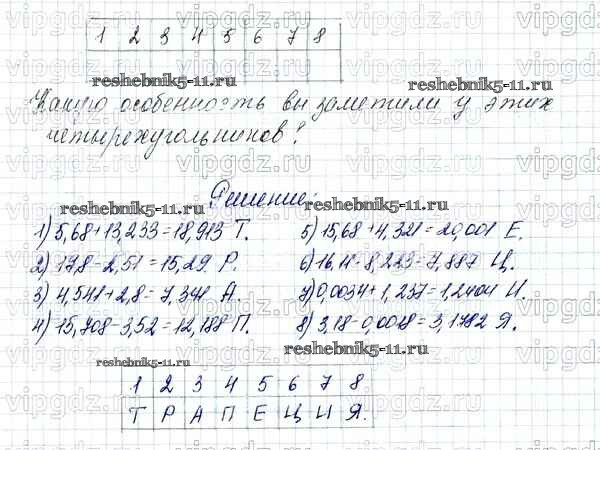 1 2 3 4 5 6 7 8
reshebnik5-11.ru
reshebnik5-11.ru
Какую особенность вы заметили у этих
четырехугольников?
Решение:
reshebnik5-11.ru
reshebnik5-11.ru
1) 5,68+13,233=18,913 Т.
5) 15,68+4,321=20,001 Е.
2) 17,8-2,51=15,29. Р.
6) 16,11-8,223=7,887 Ц.
3) 4,541+2,8=7,341 А.
7) 0,0034+1,237=1,2404 И.
4) 15,708-3,52=12,188 П.
8) 3,18-0,0018=3,1782 Я.
reshebnik5-11.ru
reshebnik5-11.ru
1 2 3 4 5 6 7 8
Т Р А П Е Ц И Я.
vipgdz.ru